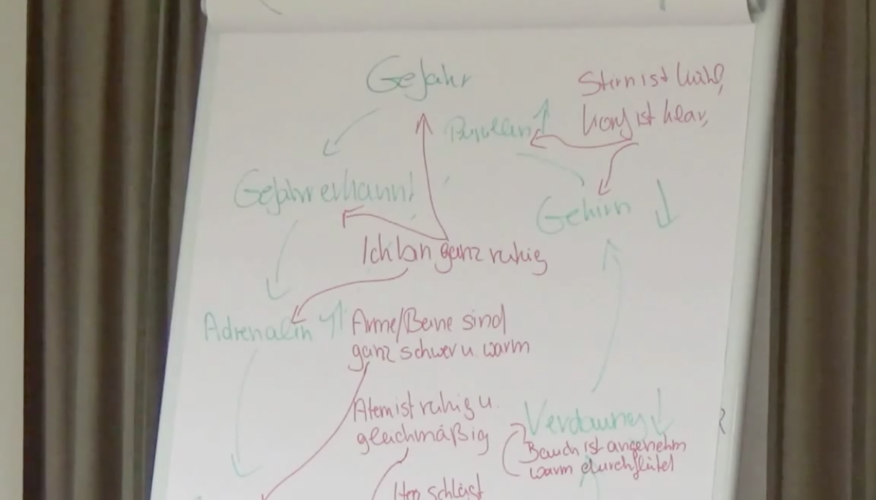 Gefahr
Stirn ist kühl,
Kopf ist klar,
Pupillen ↑
Gefahr erkannt
Gehirn ↓
Ich bin ganz ruhig
Adrenalin ↑
Arme/Beine sind
ganz schwer u. warm
Atem ist ruhig u.
gleichmäßig
Verdauung ↓
Bauch ist angenehm
warm durchflutet
schlägt